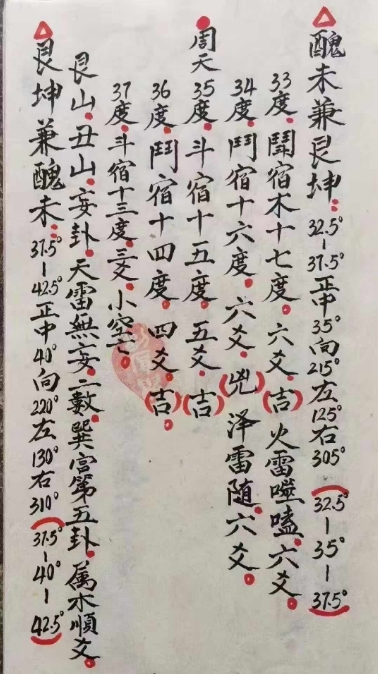 醜未兼艮坤：32.5°—37.5°正中35°向215°左125°右305°（32.5°—35°—37.5°）
33度．鬪宿木十七度．六爻．（吉）火雷噬嗑．六爻．
34度．鬥宿十六度．六爻．（兇）泽雷隨．六爻．
周天35度．斗宿十五度．五爻．（吉）
36度．鬥宿十四度．四爻．（吉）．
37度．斗宿十三度．三爻．小空亡．
艮山．丑山．妄卦．天雷無妄．二數．巽宫第五卦．属木順爻．
艮坤兼醜未：37.5°—42.5°正中40°向220°左130°右310°（37.5°—40°—42.5°）